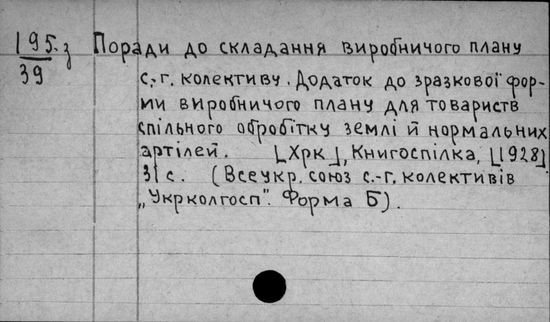 195.з Поради до складання виробничого плану
39
с.-г. колективу. Додаток до зразкової фор-
ми виробничого плану для товариств
спільного обробітку землі й нормальних
артілей. [Хрк], Книгоспілка, [1928]
31 с. (Всеукр. союз с.-г. колективів
„Укрколгосп". Форма Б).